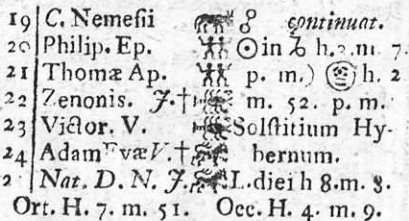 19 C. Nemeſii ☍ continuat.
20 Philip. Ep. ☉ in ♑ h. 2. m. 7.
21 Thomæ Ap. p. m.) h. 2
22 Zenonis. J. † m. 52. p. m.
23 Victor. V. Solſtitium Hy-
24 Adam Evæ V. † bernum.
2 Nat. D. N. J. L. diei h 8. m. 8.
Ort. H. 7. m. 51. Occ. H. 4. m. 9.